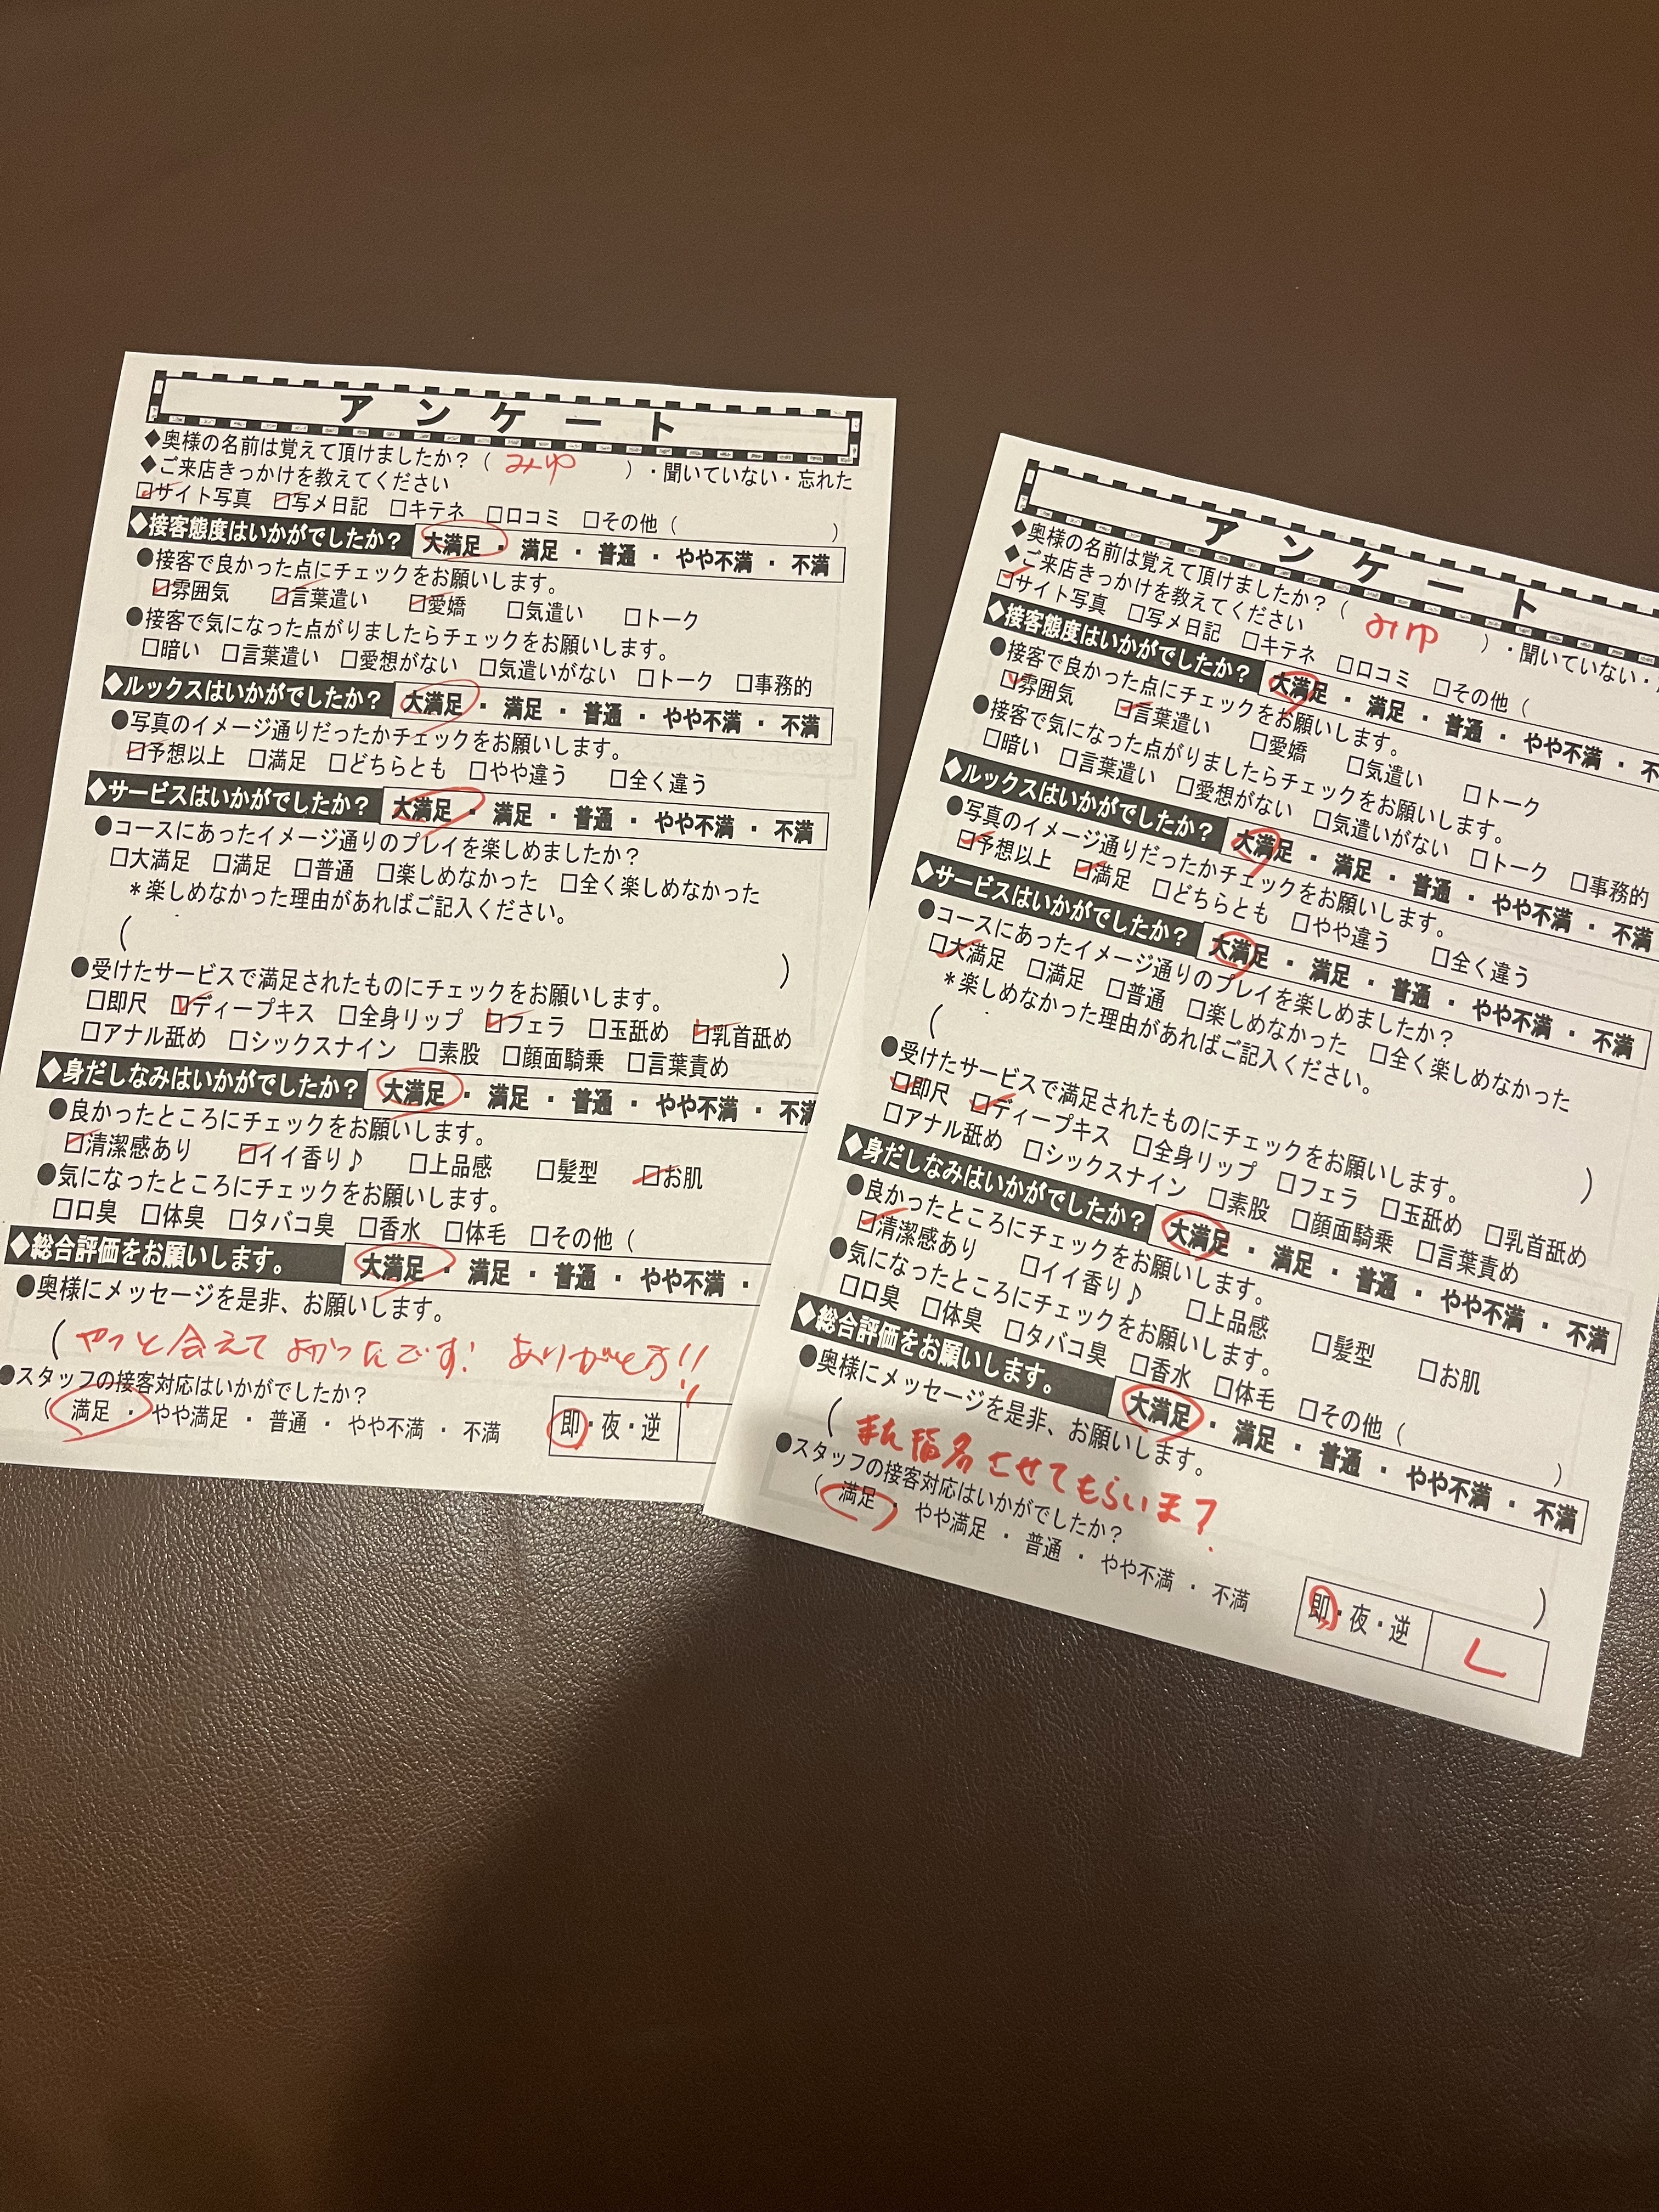 アンケート
◆奥様の名前は覚えて頂けましたか？（ みゆ ）・聞いていない・忘れた
◆ご来店きっかけを教えてください
☑サイト写真 ☑写メ日記 □キテネ □口コミ □その他（ ）
◆接客態度はいかがでしたか？ 大満足・満足・普通・やや不満・不満
●接客で良かった点にチェックをお願いします。
☑雰囲気 ☑言葉遣い ☑愛嬌 □気遣い □トーク
●接客で気になった点がりましたらチェックをお願いします。
□暗い □言葉遣い □愛想がない □気遣いがない □トーク □事務的
◆ルックスはいかがでしたか？ 大満足・満足・普通・やや不満・不満
●写真のイメージ通りだったかチェックをお願いします。
☑予想以上 □満足 □どちらとも □やや違う □全く違う
◆サービスはいかがでしたか？ 大満足・満足・普通・やや不満・不満
●コースにあったイメージ通りのプレイを楽しめましたか？
□大満足 □満足 □普通 □楽しめなかった □全く楽しめなかった
＊楽しめなかった理由があればご記入ください。
（ ）
●受けたサービスで満足されたものにチェックをお願いします。
□即尺 ☑ディープキス □全身リップ ☑フェラ □玉舐め ☑乳首舐め
□アナル舐め □シックスナイン □素股 □顔面騎乗 □言葉責め
◆身だしなみはいかがでしたか？ 大満足・満足・普通・やや不満・不満
●良かったところにチェックをお願いします。
☑清潔感あり ☑イイ香り♪ □上品感 □髪型 ☑お肌
●気になったところにチェックをお願いします。
□口臭 □体臭 □タバコ臭 □香水 □体毛 □その他（
◆総合評価をお願いします。 大満足・満足・普通・やや不満・
●奥様にメッセージを是非、お願いします。
（やっと会えてよかったです！ ありがとう!!
●スタッフの接客対応はいかがでしたか？
（ 満足・やや満足・普通・やや不満・不満
即・夜・逆
アンケート
◆奥様の名前は覚えて頂けましたか？（ みゆ ）・聞いていない・
◆ご来店きっかけを教えてください
☑サイト写真 □写メ日記 □キテネ □口コミ □その他（
◆接客態度はいかがでしたか？ 大満足・満足・普通・やや不満・不
●接客で良かった点にチェックをお願いします。
☑雰囲気 ☑言葉遣い □愛嬌 □気遣い □トーク
●接客で気になった点がりましたらチェックをお願いします。
□暗い □言葉遣い □愛想がない □気遣いがない □トーク □事務的
◆ルックスはいかがでしたか？ 大満足・満足・普通・やや不満・不満
●写真のイメージ通りだったかチェックをお願いします。
☑予想以上 ☑満足 □どちらとも □やや違う □全く違う
◆サービスはいかがでしたか？ 大満足・満足・普通・やや不満・不満
●コースにあったイメージ通りのプレイを楽しめましたか？
☑大満足 □満足 □普通 □楽しめなかった □全く楽しめなかった
＊楽しめなかった理由があればご記入ください。
（ ）
●受けたサービスで満足されたものにチェックをお願いします。
☑即尺 ☑ディープキス □全身リップ □フェラ □玉舐め □乳首舐め
□アナル舐め □シックスナイン □素股 □顔面騎乗 □言葉責め
◆身だしなみはいかがでしたか？ 大満足・満足・普通・やや不満・不満
●良かったところにチェックをお願いします。
☑清潔感あり □イイ香り♪ □上品感 □髪型 □お肌
●気になったところにチェックをお願いします。
□口臭 □体臭 □タバコ臭 □香水 □体毛 □その他（ ）
◆総合評価をお願いします。 大満足・満足・普通・やや不満・不満
●奥様にメッセージを是非、お願いします。
（また指名させてもらいま ）
●スタッフの接客対応はいかがでしたか？
（ 満足・やや満足・普通・やや不満・不満
即・夜・逆